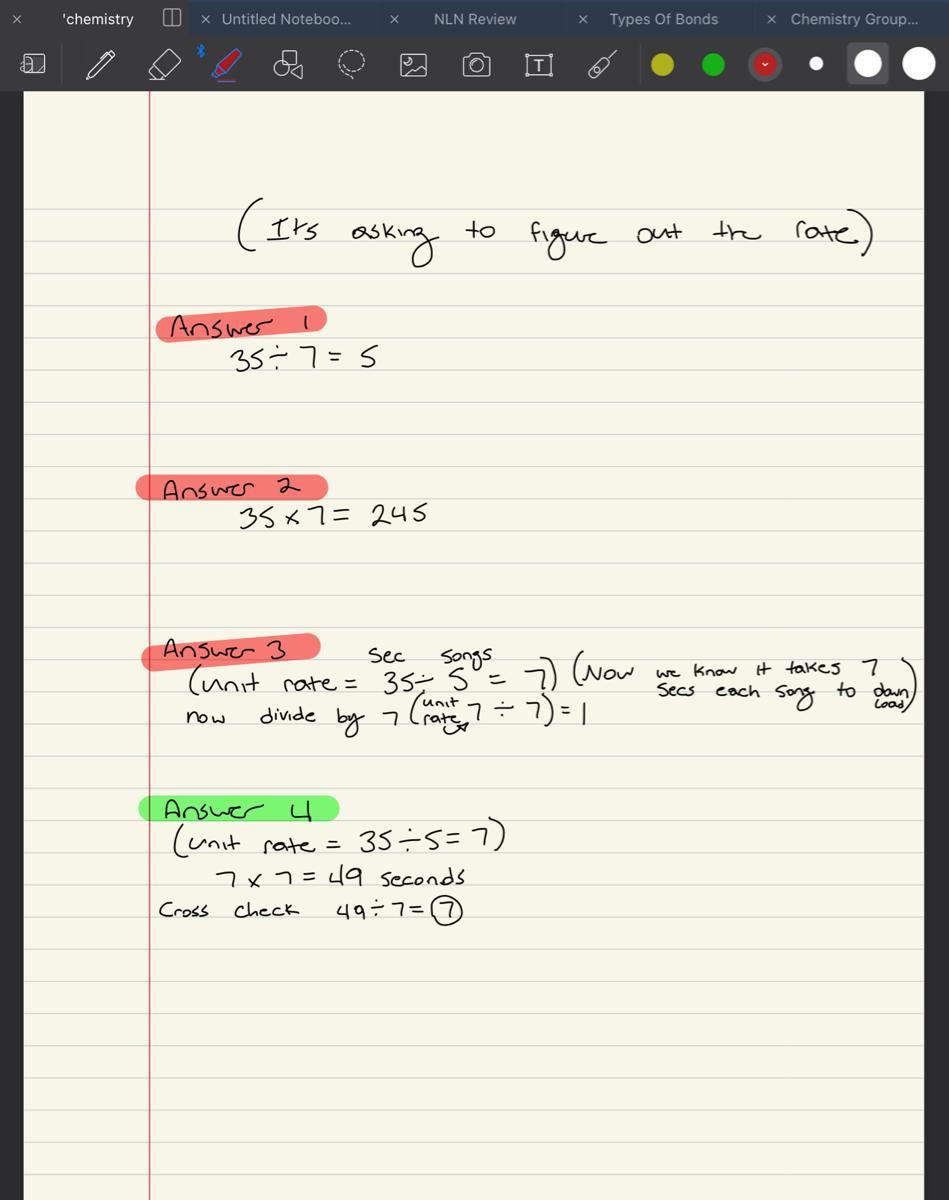 'chemistry
Untitled Noteboo...
NLN Review
Types Of Bonds
Chemistry Group...
(Its asking to figure out the rate)
Answer 1
35 ÷ 7 = 5
Answer 2
35 x 7 = 245
Answer 3
sec songs
(unit rate = 35 ÷ 5 = 7) (Now we know it takes 7
secs each song to down
load)
now divide by 7 (unit rate 7 ÷ 7) = 1
Answer 4
(unit rate = 35 ÷ 5 = 7)
7 x 7 = 49 seconds
Cross check 49 ÷ 7 = 7